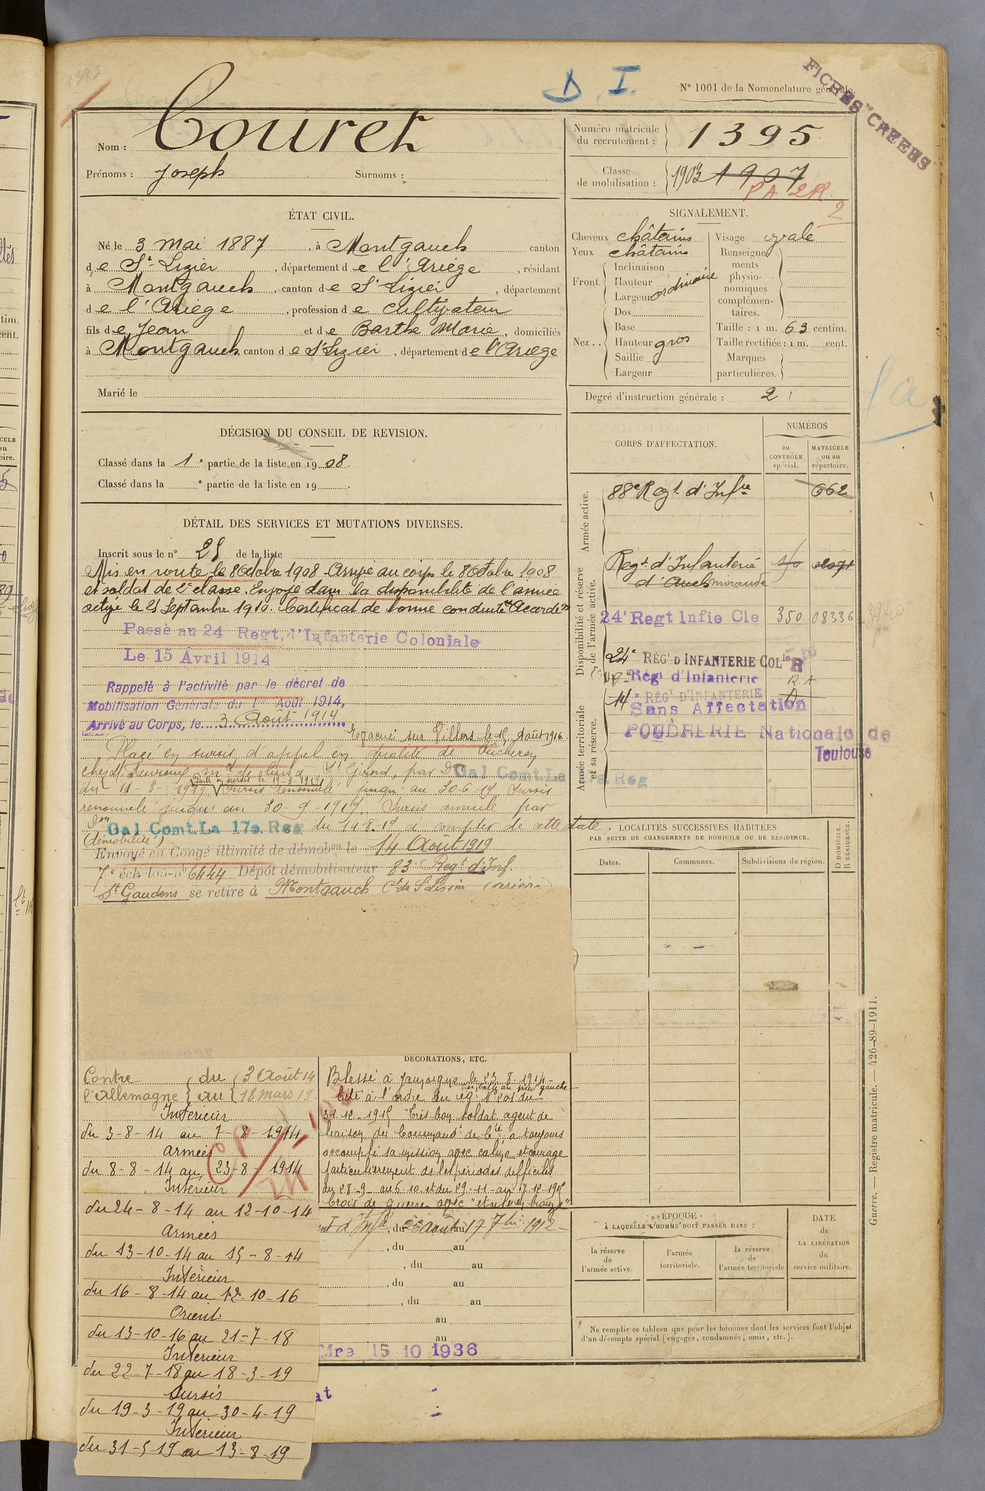 D I
N° 1001 de la Nomenclature
FICHES CRÉÉES
Nom : Couret
Prénoms : Joseph Surnoms :
Numéro matricule du recrutement : 1395
Classe de mobilisation : 1903 1907
PA 2R
2
ÉTAT CIVIL.
Né le 3 mai 1887, à Montgauch canton
de St Lizier, département de l'Ariège, résidant
à Montgauch, canton de St Lizier, département
de l'Ariège, profession de cultivateur
fils de Jean et de Barthe Marie, domiciliés
à Montgauch canton de St Lizier, département de l'Ariège
Marié le
SIGNALEMENT.
Cheveux châtains
Yeux châtains
Front Inclinaison
Hauteur
Largeur ordinaire
Nez Dos
Base
Hauteur gros
Saillie
Largeur
Visage ovale
Renseignements physionomiques complémentaires.
Taille : 1 m. 63 centim.
Taille rectifiée : 1 m. cent.
Marques particulières.
Degré d'instruction générale : 2
DÉCISION DU CONSEIL DE REVISION.
Classé dans la 1e partie de la liste en 1908.
Classé dans la e partie de la liste en 19
CORPS D'AFFECTATION.
NUMÉROS
au CONTRÔLE spécial.
MATRICULE ou au répertoire.
Armée active.
88e Regt d'Infie 662
Disponibilité et réserve de l'armée active.
Regt d'Infanterie
d'Auch
24e Regt Infie Cle 350 08336
24e RÉGt D'INFANTERIE COLle R
Rég d'Infanterie
14 RÉGt D'INFANTERIE
Sans Affectation
Armée territoriale et sa réserve.
POUDRERIE Nationale de
Toulouse
DÉTAIL DES SERVICES ET MUTATIONS DIVERSES.
Inscrit sous le n° 25 de la liste
Mis en route le 8 Octobre 1908. Arrivé au corps le 8 Octobre 1908
et soldat de 2e classe. Envoyé dans la disponibilité de l'armée
active le 25 Septembre 1910. Certificat de bonne conduite Accordé
Passé au 24 Regt, d'Infanterie Coloniale
Le 15 Avril 1914
Rappelé à l'activité par le décret de
Mobilisation Générale du 1er Août 1914,
Arrivé au Corps, le 3 Août 1914
Evacué sur Villers le 15 Août 1916
Placé en sursis d'appel en qualité de
Gal Comt La Reg
du 11-3-1919 Sursis renouvelé jusqu'au 30.6.19 Sursis
renouvelé jusqu'au 30-9-1919. Sursis annulé par
Gal Comt. La 17e Reg du 14.8.19 à compter de cette date.
(démobilisé)
Envoyé en Congé illimité de démobon le 14 Août 1919
7e échelon n° 6444 Dépôt démobilisateur 83e Regt d'Inf.
St Gaudens se retire à Montgauch
LOCALITÉS SUCCESSIVES HABITÉES
PAR SUITE DE CHANGEMENTS DE DOMICILE OU DE RÉSIDENCE.
Dates. Communes. Subdivisions de région. D DOMICILE. R RÉSIDENCE.
Contre l'Allemagne du 3 Août 14 au 18 mars 19
Intérieur
du 3-8-14 au 7-8-1914
Armées
du 8-8-14 au 23-8-1914
Intérieur
du 24-8-14 au 12-10-14
Armées
du 13-10-14 au 15-8-14
Intérieur
du 16-8-14 au 12-10-16
Orient
du 13-10-16 au 21-7-18
Intérieur
du 22-7-18 au 18-3-19
Sursis
du 19-3-19 au 30-4-19
Intérieur
du 31-5-19 au 13-8-19
CP
DÉCORATIONS, ETC.
Blessé à Jaumoigne le 23.8.1914
Cité à l'ordre du rég. N° 201 du
31-12-1915 "Très bon soldat agent de
liaison du Command' de Cie a toujours
accompli sa mission avec calme et courage
particulièrement ds les périodes difficiles
du 28-9 au 6-10 et du 29-11 au 17-12-1915"
Croix de guerre avec "étoile de bronze"
du 26 Août au 17 7bre 1912
, du au
, du au
, du au
, du au
au
au
Mre 15 10 1936
at
ÉPOQUE
À LAQUELLE L'HOMME DOIT PASSER DANS :
la réserve de l'armée active.
l'armée territoriale.
la réserve de l'armée territoriale
DATE de LA LIBÉRATION du service militaire.
Ne remplir ce tableau que pour les hommes dont les services font l'objet
d'un décompte spécial (engagés, condamnés, omis, etc.).
Guerre. — Registre matricule. — 426-89-1911.